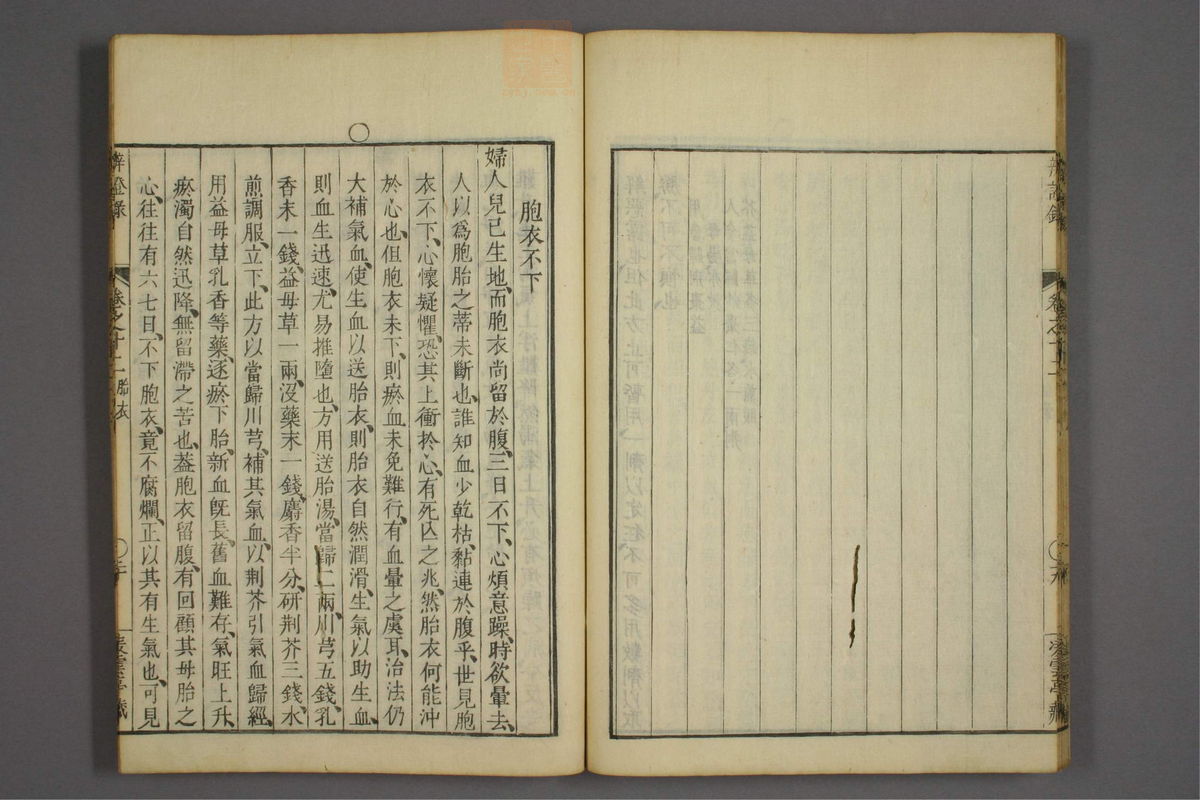 胞衣不下
婦人兒已生地、而胞衣尚留於腹、三日不下、心煩意躁、時欲暈去、
人以爲胞胎之蒂未斷也、誰知血少乾枯、黏連於腹乎、世見胞
衣不下、心懷疑懼、恐其上衝於心、有死亾之兆、然胎衣何能沖
於心也、但胞衣未下、則瘀血未免難行、有血暈之虞耳、治法仍
大補氣血、使生血以送胎衣、則胎衣自然潤滑、生氣以助生血、
則血生迅速、尤易推墮也、方用送胎湯、當歸二兩、川芎五錢、乳
香末一錢、益母草一兩、沒藥末一錢、麝香半分、研荆芥三錢、水
煎調服、立下、此方以當歸川芎、補其氣血、以荆芥引氣血歸經、
用益母草乳香等藥、逐瘀下胎、新血旣長、舊血難存、氣旺上升、
瘀濁自然迅降、無留滯之苦也、蓋胞衣留腹、有回顧其母胎之
心、往往有六七日、不下胞衣、竟不腐爛、正以其有生氣也、可見
辨證錄
卷之十二
胎衣